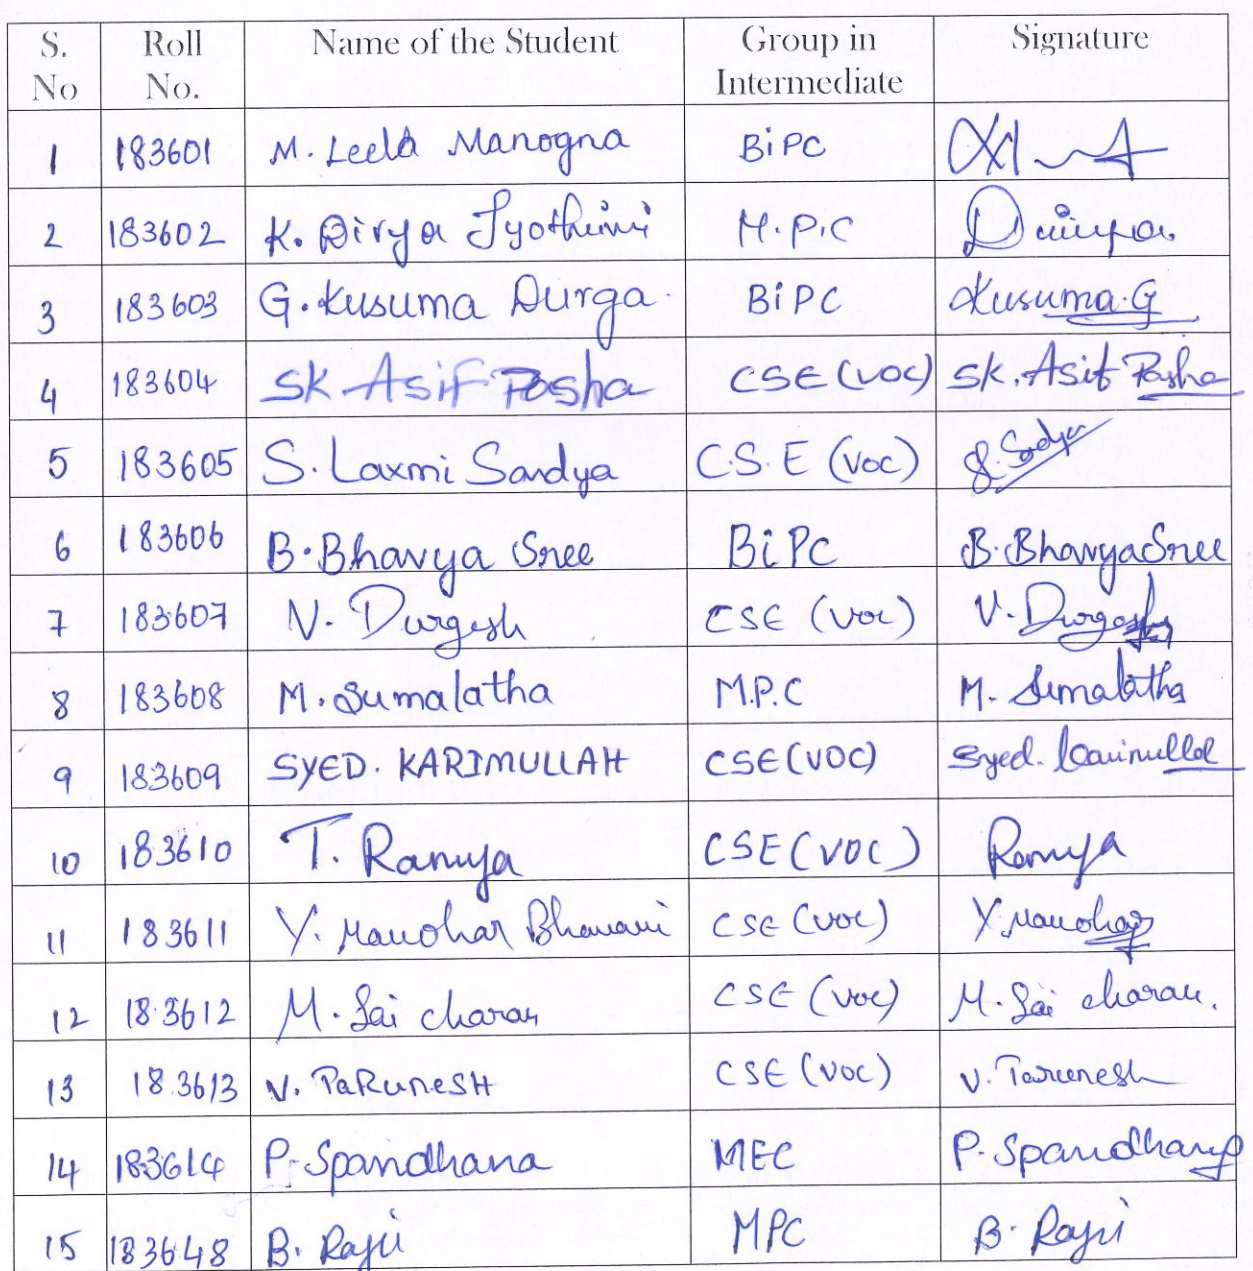 S. No Roll No. Name of the Student Group in Intermediate Signature
1 183601 M. Leela Manogna BiPC
2 183602 K. Divya Jyothirmi M.P.C
3 183603 G. Kusuma Durga. BiPC Kusuma.G
4 183604 SK Asif Pasha CSE (VOC) SK. Asif Pasha
5 183605 S. Laxmi Sandya C.S.E (Voc) S. Sandya
6 183606 B. Bhavya Sree BiPC B. Bhavya Sree
7 183607 V. Durgesh CSE (Voc) V. Durgesh
8 183608 M. Sumalatha M.P.C M. Sumalatha
9 183609 SYED. KARIMULLAH CSE (VOC) Syed. Karimullah
10 183610 T. Ramya CSE (VOC) Ramya
11 183611 Y. Manohar Bhavani CSE (voc) Y. Manohar
12 183612 M. Sai charan CSE (voc) M. Sai charan.
13 183613 V. TaRunesH CSE (voc) V. Tarunesh
14 183614 P. Spandhana MEC P. Spandhana
15 183648 B. Raju MPC B. Raju